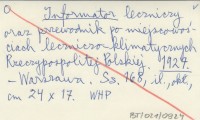 Informator leczniczy
oraz przewodnik po miejscowoś-
ciach leczniczo-klimatycznych
Rzeczypospolitej Polskiej. 1927.
– Warszawa. Ss. 168, il., okł.,
cm 24 x 17. WHP
BJ/021/0927